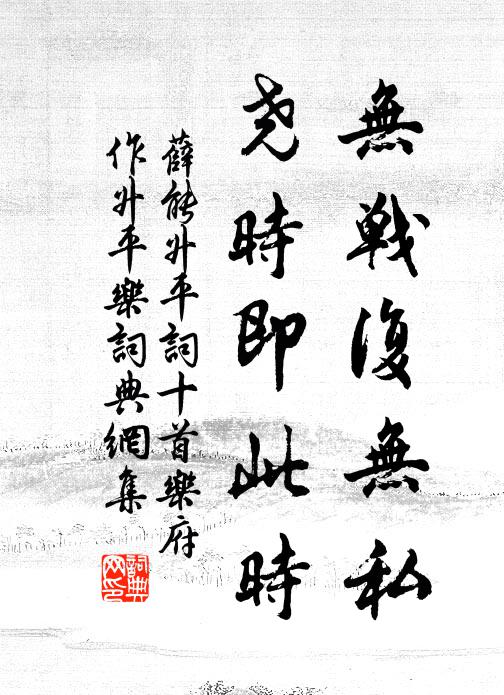 無戰復無私
堯時即此時
薛能升平詞十首樂府
作升平樂詞典網集
詞典網印